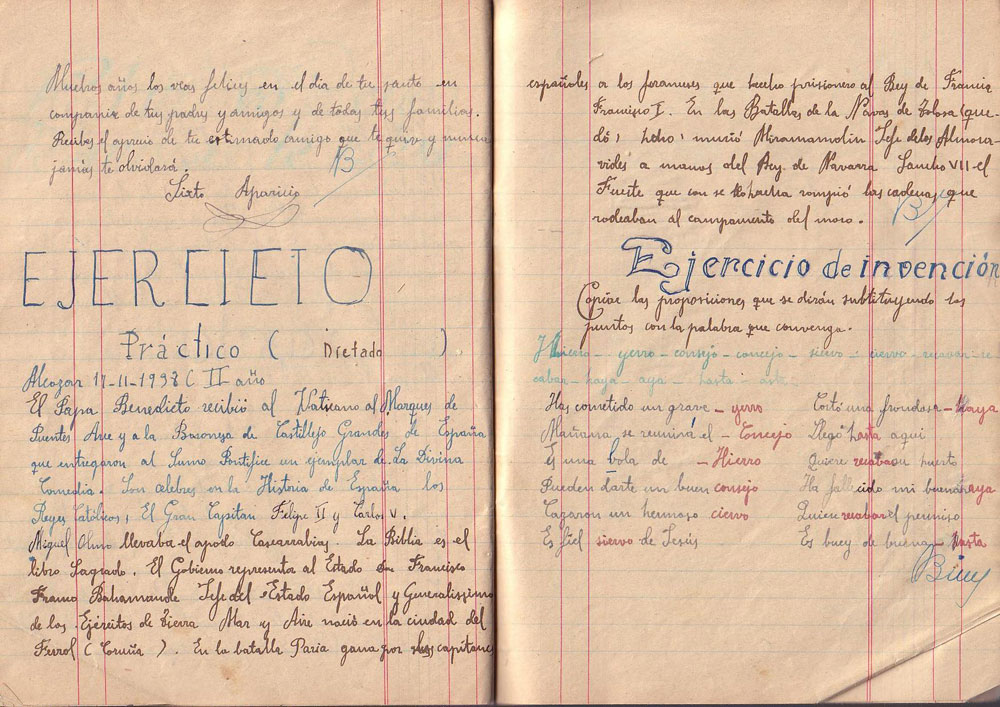 Muchos años los veas felices en el dia de tu santo en
compania de tus padres y amigos y de todas tus familias.
Recibas el aprecio de tu estimado amigo que te quiere y nunca
jamás te olvidará.
B
Sixto Aparicio
EJERCIETO
Práctico ( Dictado )
Alcozar 17-11-1938 ( II año
El Papa Benedicto recibió al Vaticano al Marques de
Puentes Ave y a la Baronesa de Castillejo Grandes de España
que entregaron al Sumo Pontifice un ejemplar de La Divina
Comedia. Son celebres en la Historia de España los
Reyes Católicos, El Gran Capitan Felipe II y Carlos V.
Miguel Olmo llevaba el apodo Cascarrabias. La Biblia es el
libro Sagrado. El Gobierno representa al Estado Francisco
Franco Bahamande Jefe del Estado Español y Generalissimo
de los Ejércitos de tierra Mar y Aire nació en la ciudad del
Ferrol ( Coruña ). En la batalla Paria gana por los capitanes
españoles a los franceses que hecho prisionero al Rey de Francia
Francisco I. En las Batalla de la Navas de Tolosa (que-
dó, hoho: murió Miramamolin Jefe de los Almora-
vides a manos del Rey de Navarra Sancho VII el
Fuerte que con se rompió las cadenas que
rodeaban al campamento del moro.
B
Ejercicio de invención
Copiar las proposiciones que se dirán subtituyendo los
puntos con la palabra que convenga.
Hierro - yerro - consejo - concejo - siervo - ciervo - recavar - re-
cabar - haya - aya - hasta - asta.
Has cometido un grave - yerro
Mañana se reunirá el - Concejo
Es una bola de - Hierro
Pueden darte un buen consejo
Cazaron un hermoso ciervo
Es fiel siervo de Jesús
Cortó una frondosa - Haya
Llegó hasta aqui
Quiere recabar su puerto
Ha fallecido mi buena aya
Quiere recavar el permiso
Es buey de buena - hasta
Bien